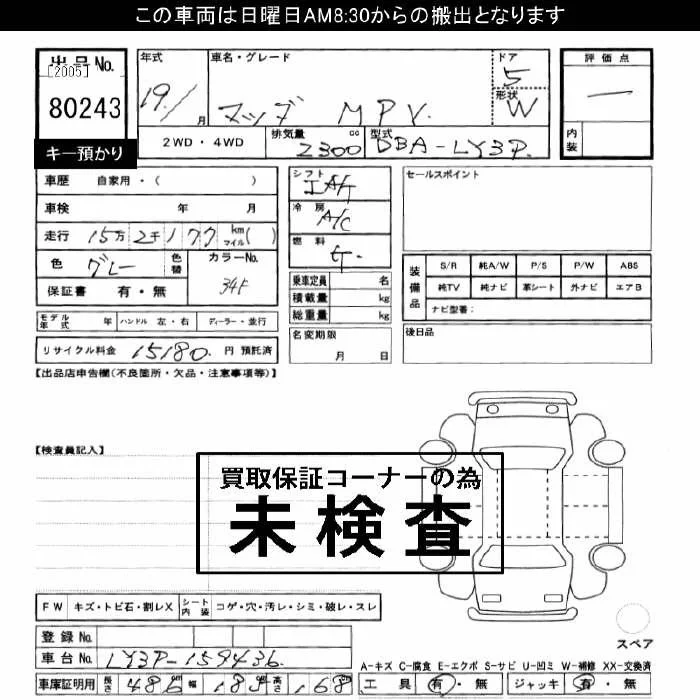 この車両は日曜日AM8:30からの搬出となります
出品No. [2005]
80243
キー預かり
年式 19.1 月
車名・グレード マツダ MPV.
ドア 5
形状 W
評価点 —
内装
2WD・4WD 排気量 2300 cc 型式 DBA-LY3P.
車歴 自家用・( )
車検 年 月
走行 15万2千177 km マイル( )
色 グレー 色替 カラーNo. 34F
保証書 有・無
シフト IAT
冷房 A/C
燃料 G.
乗車定員 名
積載量 kg
総重量 kg
セールスポイント
装備品 S/R 純A/W P/S P/W ABS
純TV 純ナビ 革シート 外ナビ エアB
ナビ型番:
モデル年式 年 ハンドル 左・右 ディーラー・並行
名変期限 月 日
後日品
リサイクル料金 15180. 円 預託済
【出品店申告欄(不良箇所・欠品・注意事項等)】
【検査員記入】
買取保証コーナーの為
未検査
FW キズ・トビ石・割レX シート内装 コゲ・穴・汚レ・シミ・破レ・スレ
登録No.
車台No. LY3P-159436.
スペア
A-キズ C-腐食 E-エクボ S-サビ U-凹ミ W-補修 XX-交換済
車庫証明用 長さ 486 幅 185 高さ 168
工具 有・無 ジャッキ 有・無